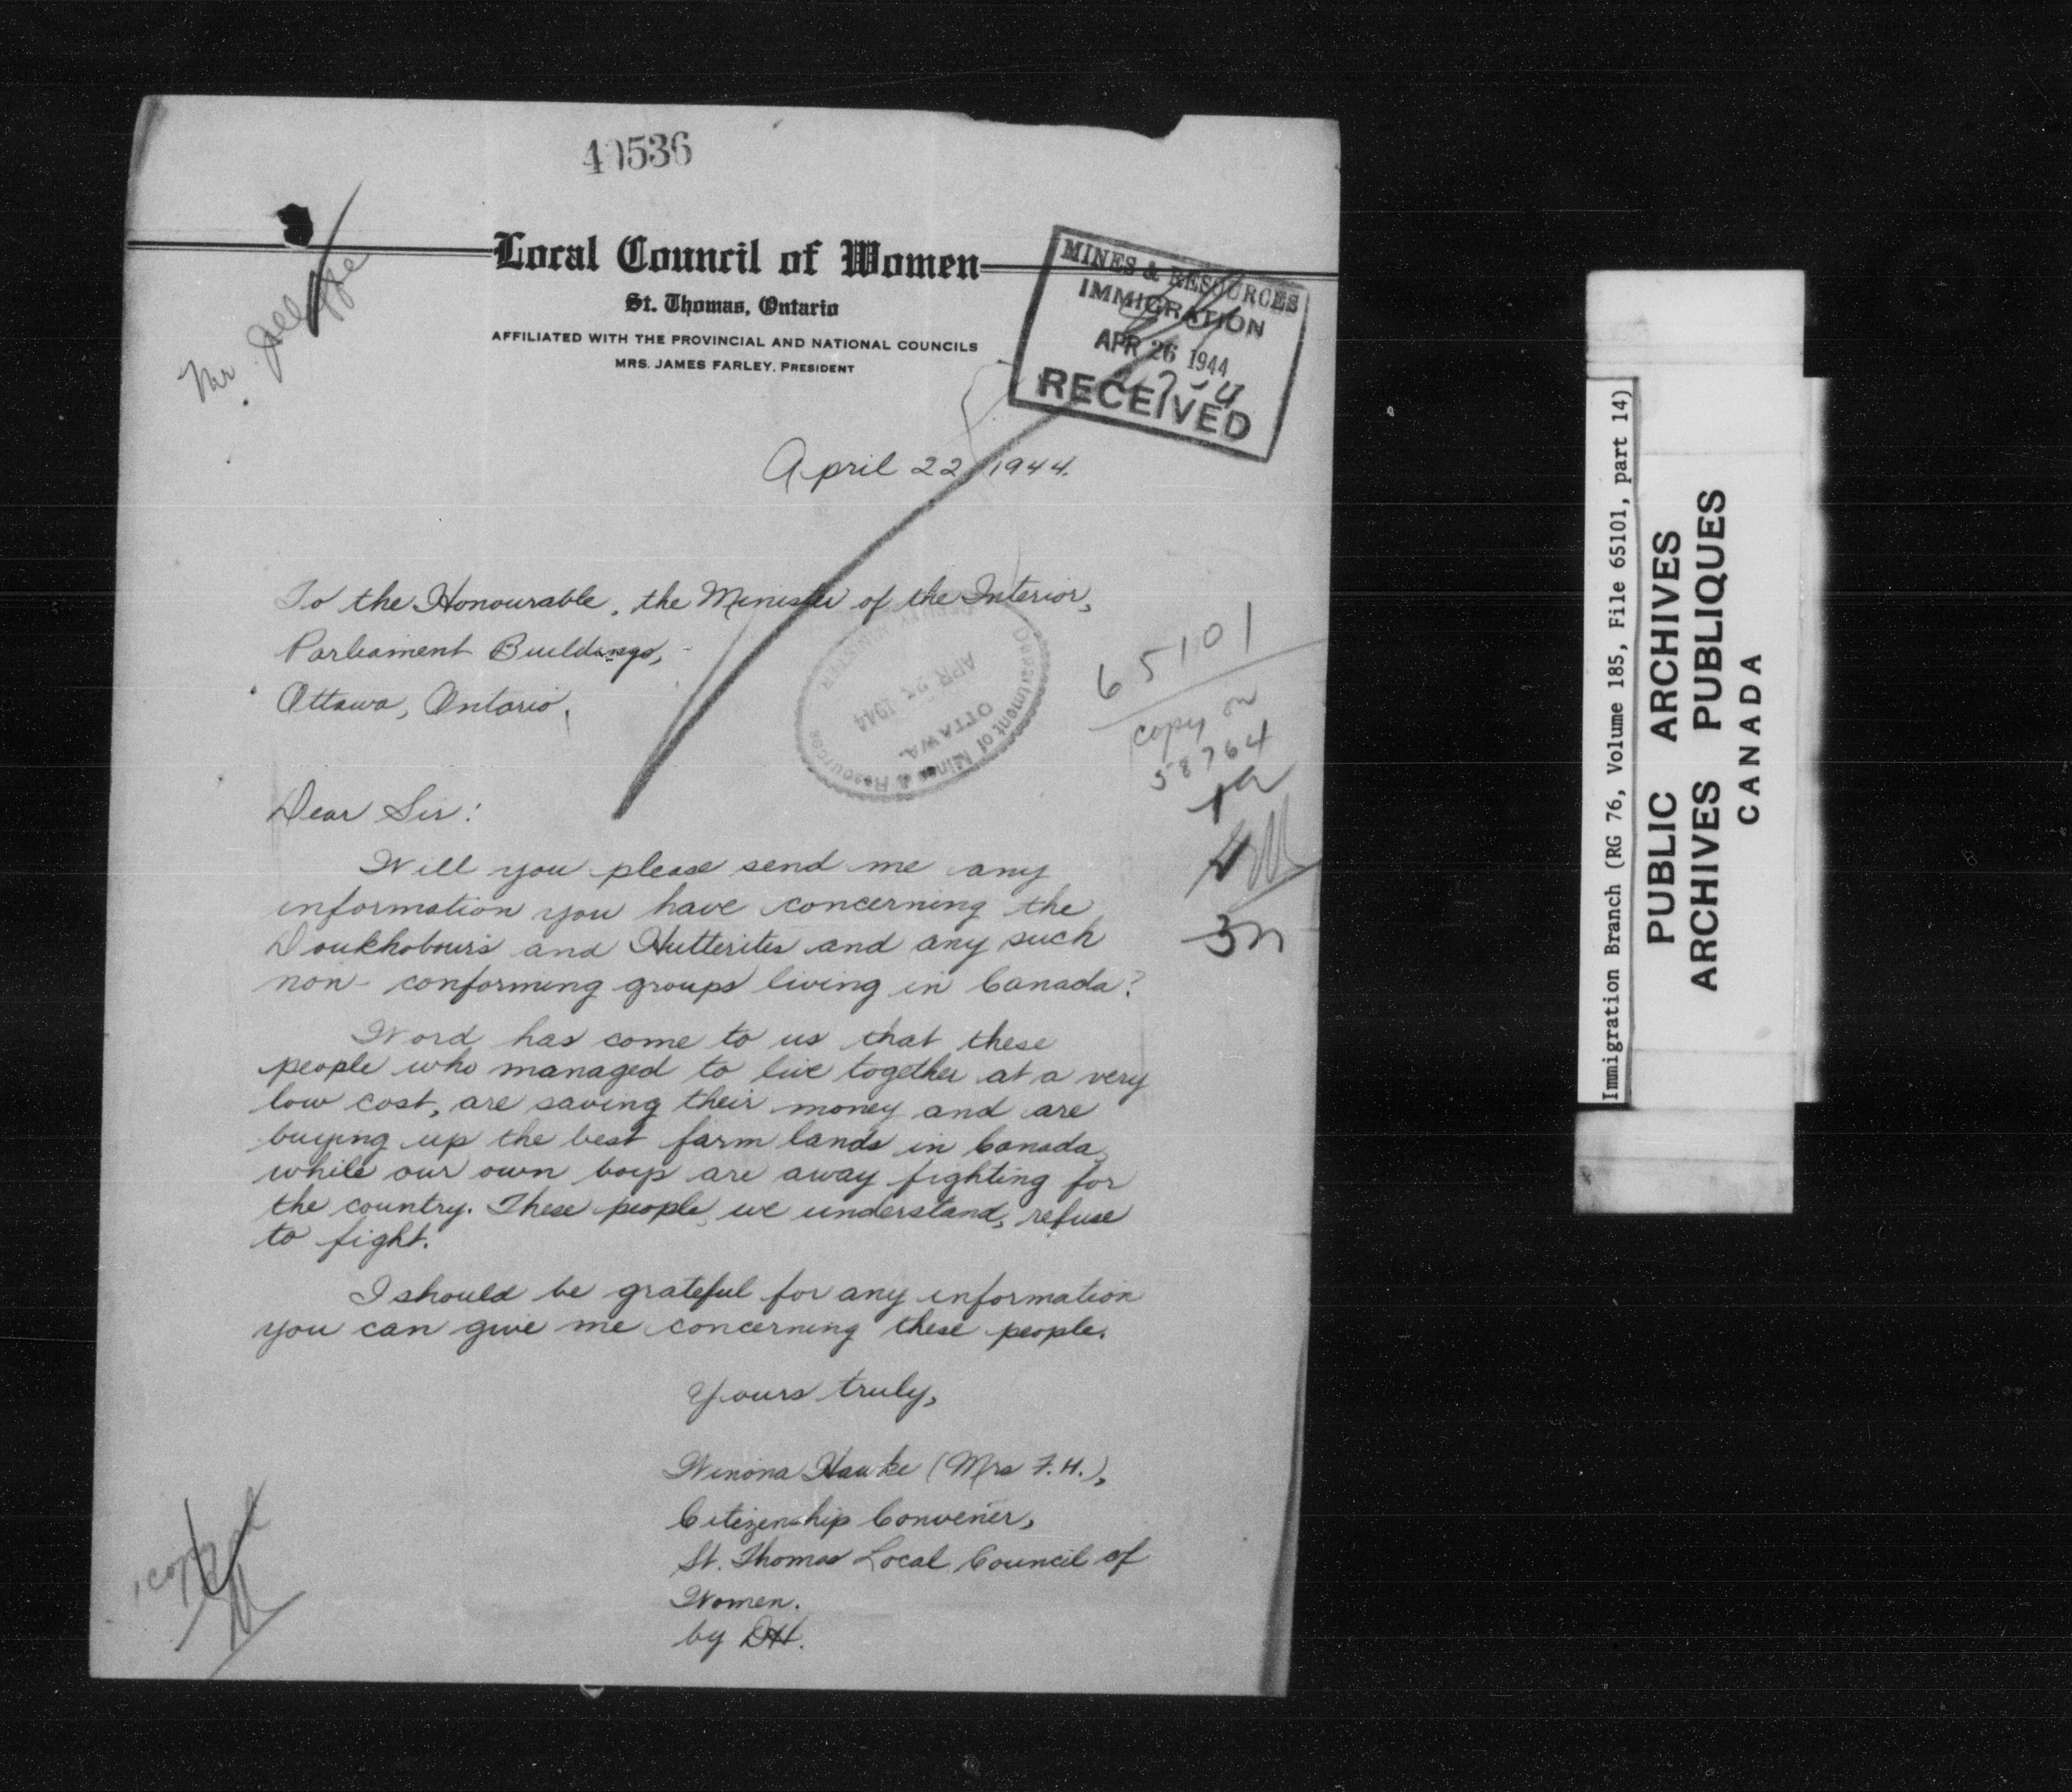 40536
Local Council of Women
St. Thomas, Ontario
AFFILIATED WITH THE PROVINCIAL AND NATIONAL COUNCILS
MRS. JAMES FARLEY, PRESIDENT
Mr
MINES & RESOURCES
IMMIGRATION
APR 26 1944
RECEIVED
April 22, 1944.
To the Honourable, the Minister of the Interior,
Parliament Buildings,
Ottawa, Ontario.
Department of Mines & Resources
OTTAWA.
APR 1944
65101
copy on
58764
Dear Sir:
Will you please send me any
information you have concerning the
Doukhobours and Hutterites and any such
non-conforming groups living in Canada?
Word has come to us that these
people who managed to live together at a very
low cost, are saving their money and are
buying up the best farm lands in Canada,
while our own boys are away fighting for
the country. These people, we understand, refuse
to fight.
I should be grateful for any information
you can give me concerning these people.
Yours truly,
Winona Hawke (Mrs F. H.),
Citizenship Convener,
St. Thomas Local Council of
Women.
by DH.
Immigration Branch (RG 76, Volume 185, File 65101, part 14)
PUBLIC ARCHIVES
ARCHIVES PUBLIQUES
CANADA